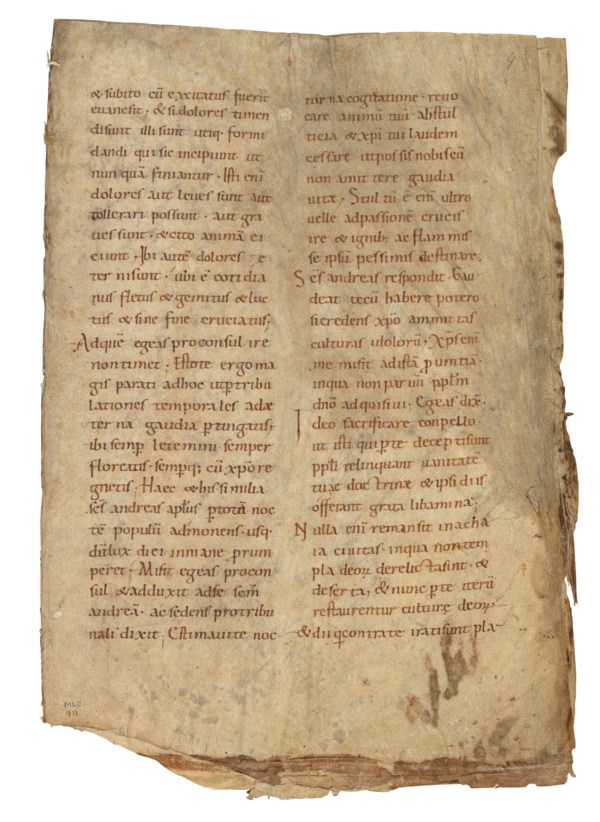 & subito cū excitatus fuerit
evanesit · & si dolores timen
di sunt illi sunt utiq; formi
dandi qui sic incipiunt ut
nunquā finiantur · Isti eni
dolores aut leues sunt aut
tollerari possunt · aut gra
ues sunt · & cito animā ei
ciunt · Ibi autē dolores e
terni sunt · ubi ē cotidia
nus fletus & gemitus & luc
tus & sine fine cruciatus;
Ad quē egeas proconsul ire
non timet · Estote ergo ma
gis parati ad hoc ut p tribu
lationes temporales ad æ
terna gaudia ptingatis;
ibi semp letemini · semper
floreatis · sempq; cū xp̄o re
gnetis · Haec & his similia
sc̄s andreas apl̄us p totā noc
tē populū admonens · usq;
dū lux diei in mane prum
peret · Misit egeas procon
sul & adduxit ad se sc̄m
andreā · ac sedens pro tribu
nali dixit · Estimavi te noc
turna cogitatione · reuo
care animū tuū ab stul
ticia & xp̄i tui laudem
cessare ut possis nobiscū
non amittere gaudia
uitæ · Stultū ē eni ultro
uelle ad passionē crucis
ire & ignib; ac flammis
se ipsū pessimis destinare ·
Sc̄s andreas respondit · Gau
deat tecū habere potero
si credens xp̄o amittas
culturas idolorū; Xp̄s eni
me misit ad istā puintia ·
in qua non paruū pplm̄
dn̄o adquisiui · Egeas dix̄ ·
Ideo sacrificare conpello ·
ut isti qui p te decepti sunt
ppli relinquant uanitatē
tuæ doctrinæ & ipsi diis
offerant grata libamina;
Nulla eni remansit in acha
ia ciuitas in qua non tem
pla deorū derelicta sint · &
deserta; & nunc p te iterū
restaurentur culture deorū
& dii q contra te irati sunt pla
MLC
911